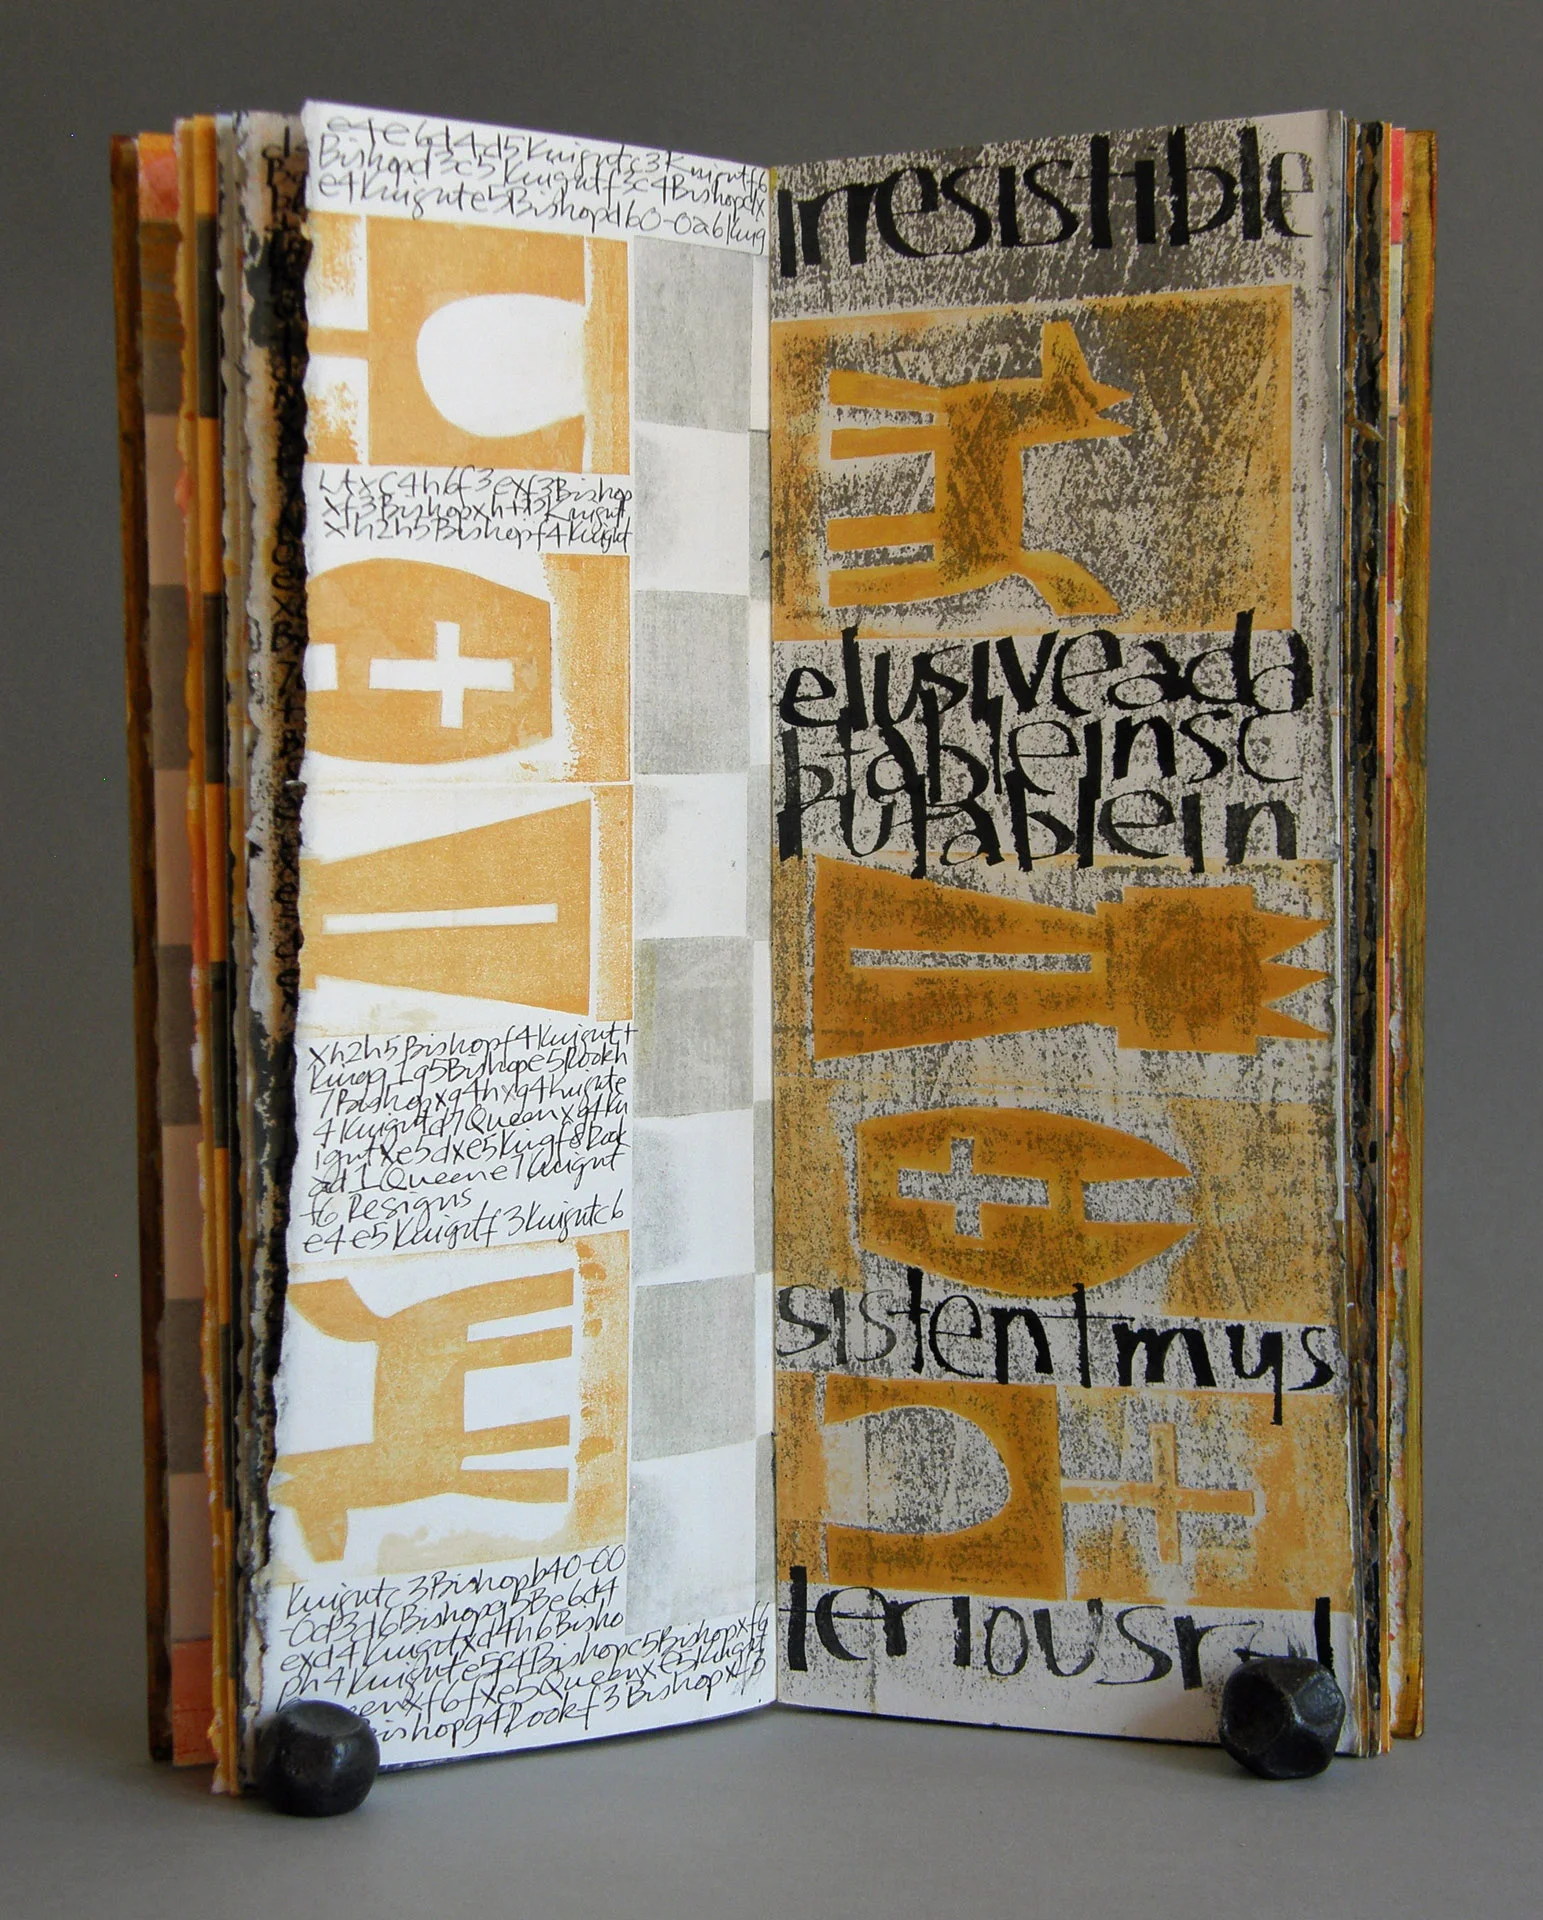 e4e6d4d5Knightc3Knightf6
Bishopd3c5Knightf3c4Bishopdx
e4Knighte5Bishopd60-0a6King
xc4h6f3exf3Bishop
xf3Bishopxh+f3Knight
xh2h5Bishopf4Knight
xh2h5Bishopf4Knight+
Kingg1g5Bishope5Rookh
7Bishopxg4hxg4Knighte
4Knightd7Queenxg4Kn
ightxe5dxe5Kingf8Rook
ad1Queene7Knight
f6Resigns
e4e5Knightf3Knightc6
Knightc3Bishopb40-00
-0d3d6Bishopg5Be6d4
exd4Knightxd4h6Bisho
ph4Knighte5f4Bishopc5Bishopxf6
Queenxf6fxe5Queenxe5Knight
Bishopg4Rookf3Bishopxf3
irresistible
elusiveada
ptableinsc
rutablein
sistentmys
terious